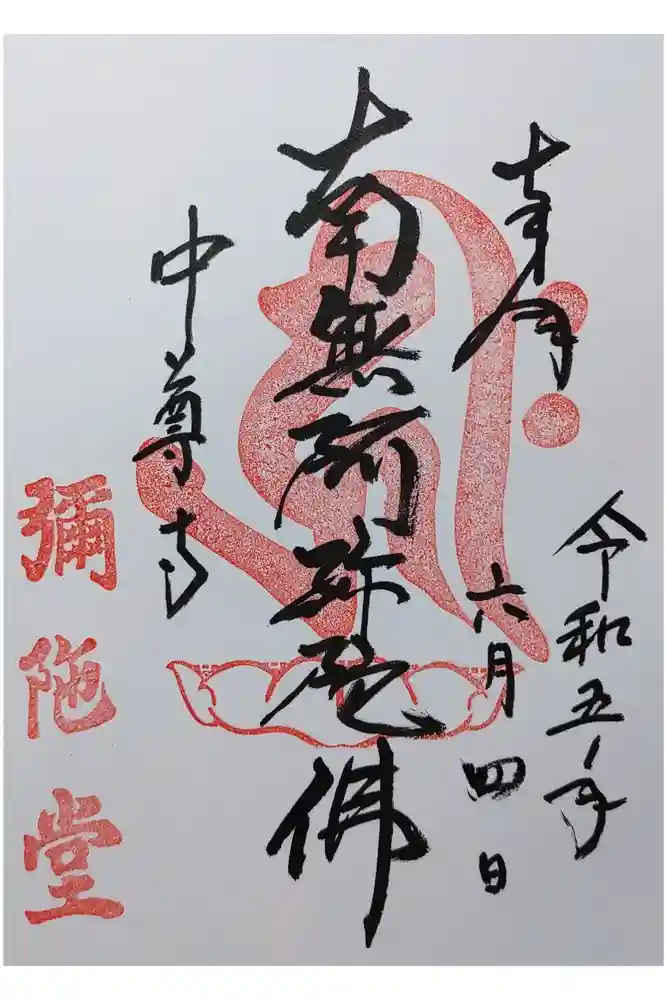 奉拝
令和五年
六月四日
南無阿弥陀佛
中尊寺
彌陁堂